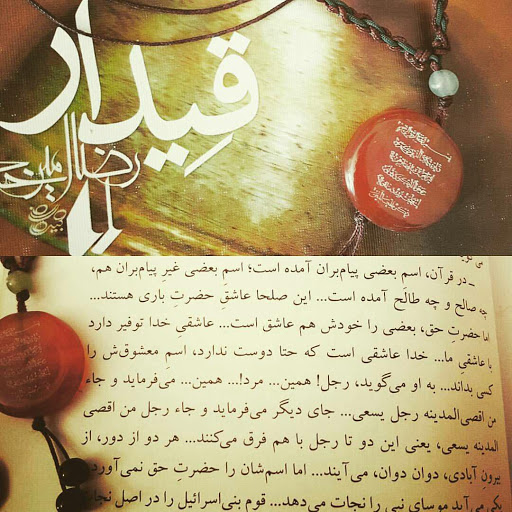 قیدار
رضا امیرخانی
ـ در قرآن، اسم بعضی پیام‌بران آمده است؛ اسم بعضی غیرِ پیام‌بران هم،
چه صالح و چه طالح آمده است... این صلحا عاشقِ حضرتِ باری هستند...
اما حضرتِ حق، بعضی را خودش هم عاشق است... عاشقیِ خدا توفیر دارد
با عاشقی ما... خدا عاشقی است که حتا دوست ندارد، اسمِ معشوق‌ش را
کسی بداند... به او می‌گوید، رجل! همین... مرد!... همین... می‌فرماید و جاء
من اقصی‌المدینه رجل یسعی... جای دیگر می‌فرماید و جاء رجل من اقصی
المدینه یسعی، یعنی این دو تا رجل با هم فرق می‌کنند... هر دو از دور، از
بیرونِ آبادی، دوان دوان، می‌آیند... اما اسم‌شان را حضرتِ حق نمی‌آورد
یکی می‌آید موسای نبی را نجات می‌دهد... قوم بنی‌اسرائیل را در اصل نجات